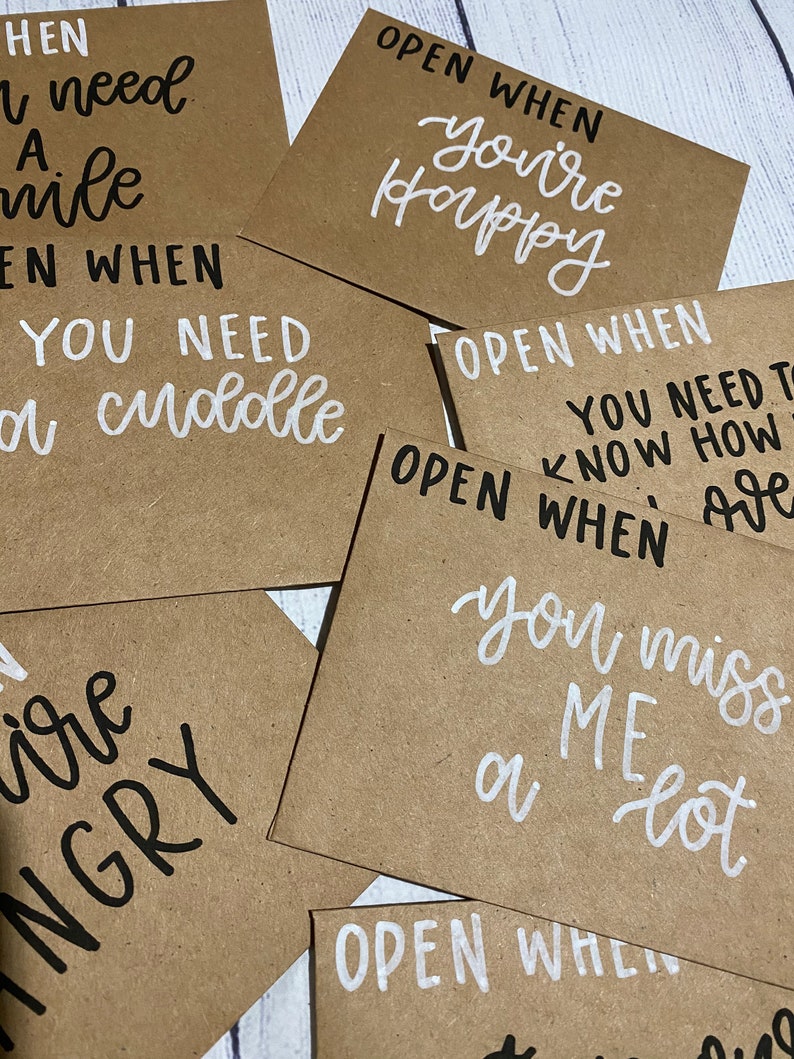 HEN
need
A
mile
OPEN WHEN
you're
Happy
EN WHEN
YOU NEED
a cuddle
OPEN WHEN
YOU NEED TO
KNOW HOW
ove
OPEN WHEN
you miss
ME
a lot
N
're
ANGRY
OPEN WHEN